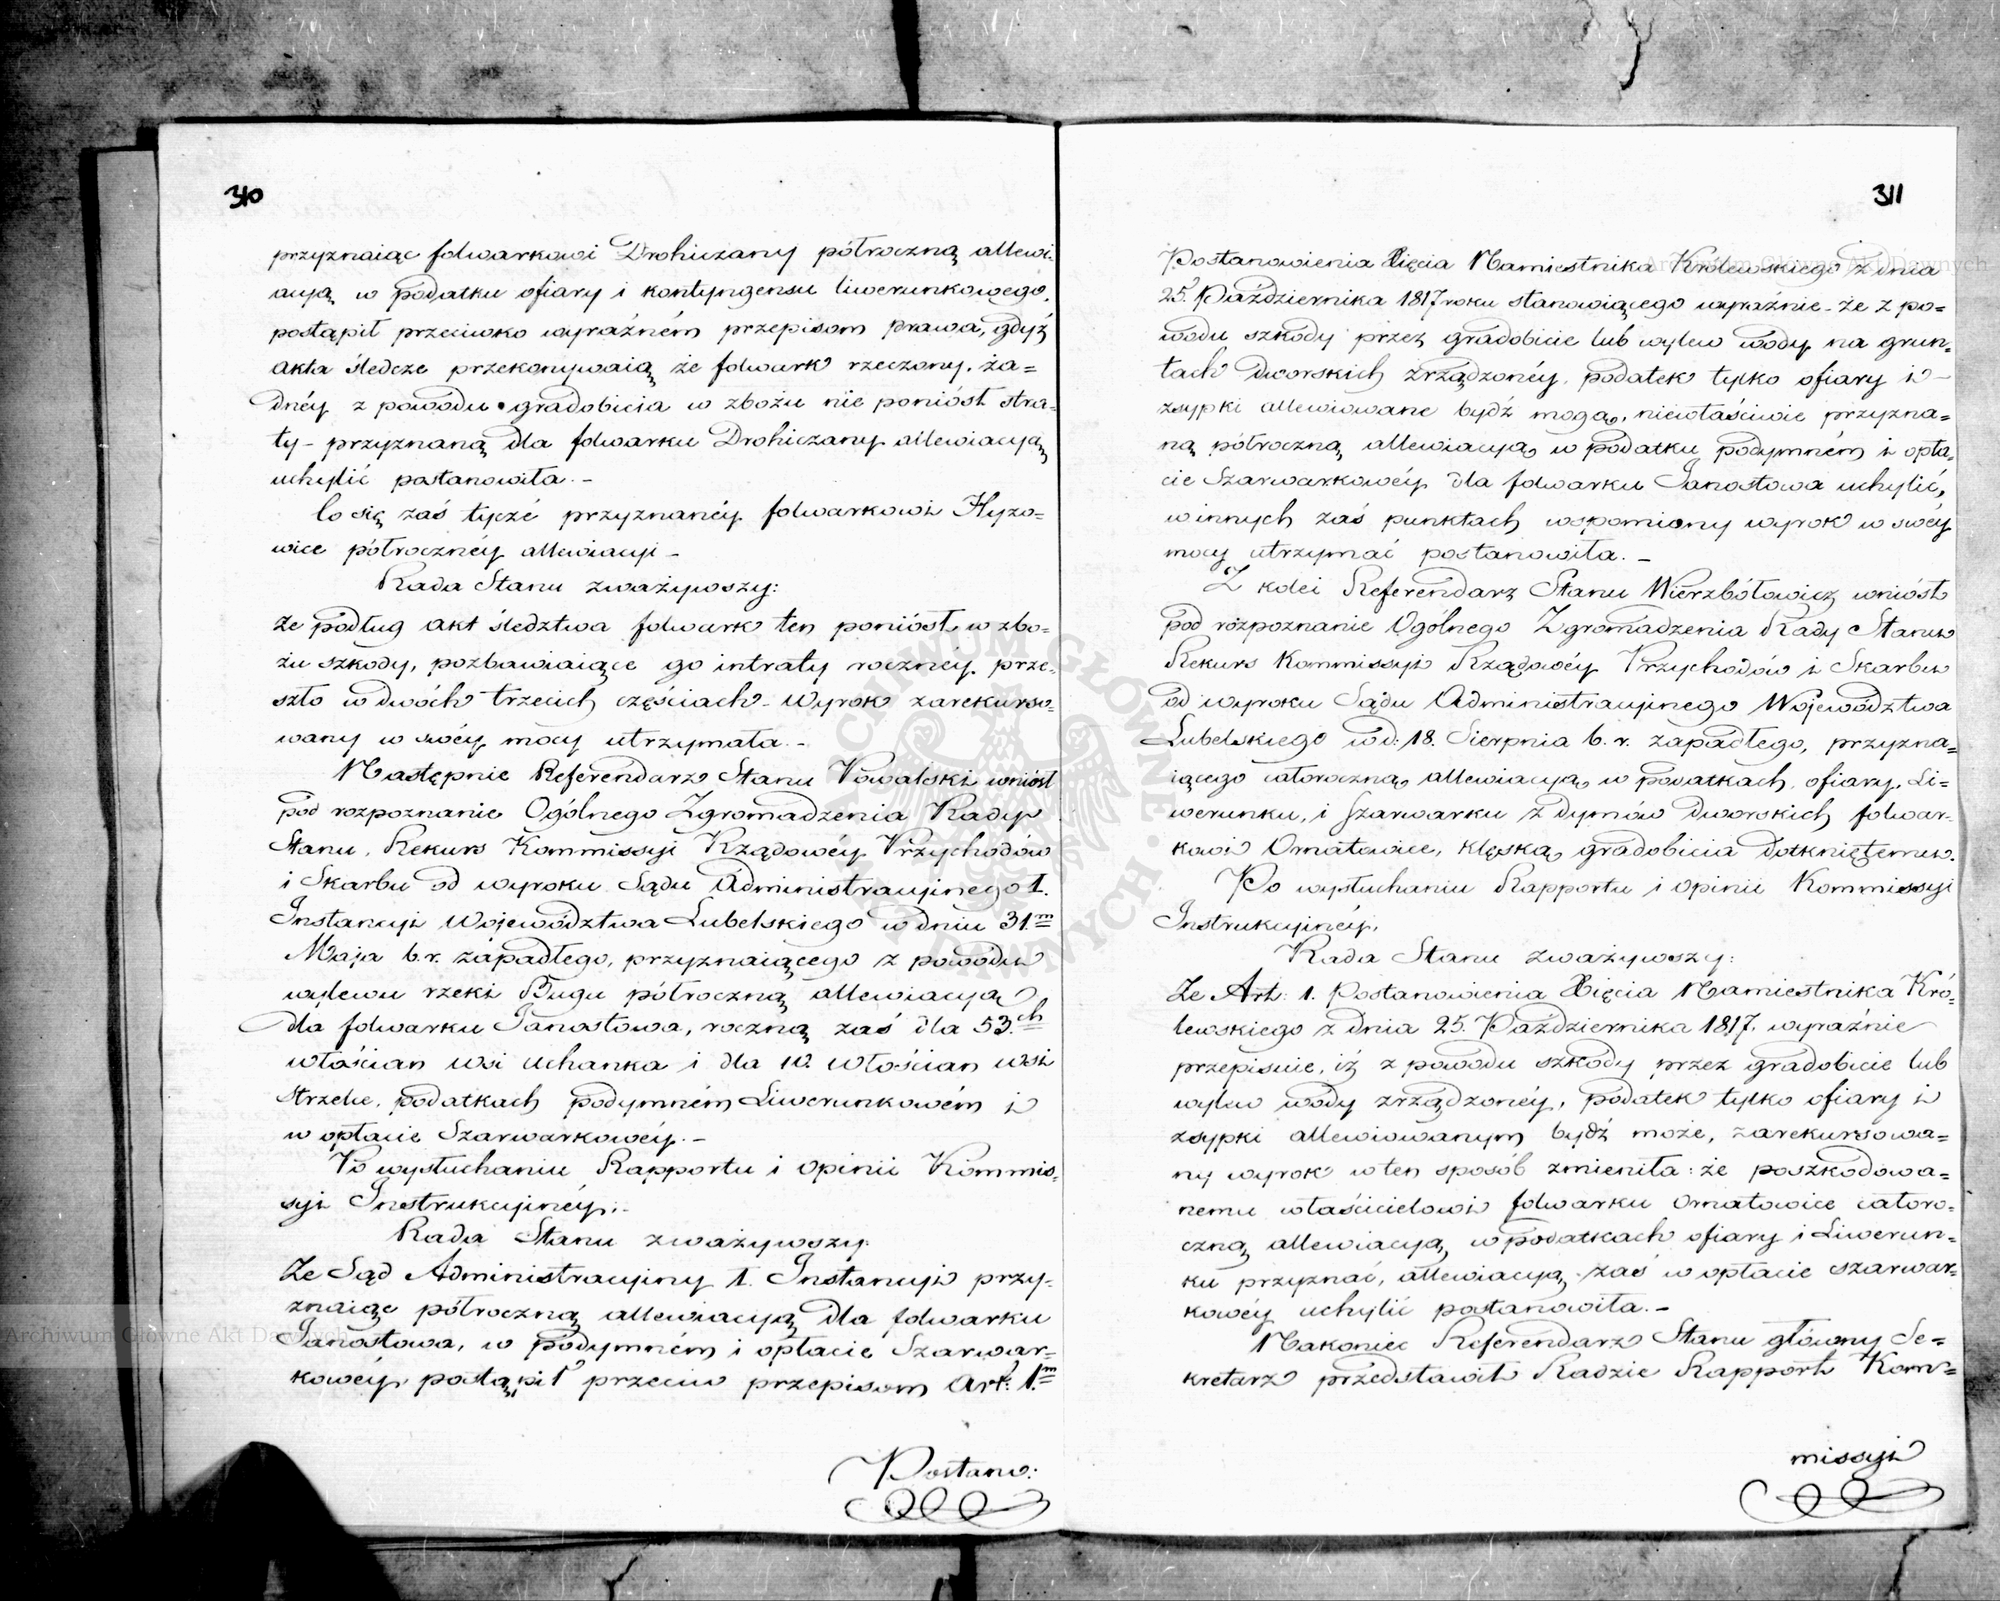 310
przyznaiąc folwarkowi Drohiczany półroczną allewi-
acyą w podatku ofiary i kontyngensu liwerunkowego,
postąpił przeciwko wyraźném przepisom prawa, gdyż
akta śledcze przekonywaią że folwark rzeczony, ża=
dnéy z powodu gradobicia w zbożu nie poniósł stra-
ty – przyznaną dla folwarku Drohiczany allewiacyą
uchylić postanowiła. –
Co się zaś tycze przyznanéy folwarkowi Hyzo=
wice półrocznéy allewiacyi –
Rada Stanu zważywszy:
że podług akt śledztwa folwark ten poniósł w zbo=
żu szkody, pozbawiaiące go intraty rocznéy prze-
szło w dwóch trzecich częściach – wyrok zarekurso-
wany w swéy mocy utrzymała. –
Następnie Referendarz Stanu Kowalski wniósł
pod rozpoznanie Ogólnego Zgromadzenia Rady
Stanu, Rekurs Kommissyi Rządowéy Przychodów
i Skarbu od wyroku Sądu Administracyinego 1.
Instancyi Województwa Lubelskiego w dniu 31.m
Maja b. r. zapadłego, przyznaiącego z powodu
wylewu rzeki Bugu półroczną allewiacyą
dla folwarku Janostowa, roczną zaś dla 53.ch
włościan wsi Uchanka i dla 10. włościan wsi
Strzelce, podatkach podymném Liwerunkowém i
w opłacie Szarwarkowéy. –
Po wysłuchaniu Rapportu i opinii Kommis-
syi Instrukcyinéy;
Rada Stanu zważywszy:
Że Sąd Administracyiny 1. Instancyi przy-
znaiąc półroczną allewiacyą dla folwarku
Janostowa, w podymném i opłacie Szarwar-
kowéy, postąpił przeciw przepisom Art: 1.m
Postanow:
311
Postanowienia Xięcia Namiestnika Królewskiego z dnia
25. Października 1817 roku stanowiącego wyraźnie – że z po=
wodu szkody przez gradobicie lub wylew wody na grun-
tach dworskich zrządzonéy, podatek tylko ofiary i –
zsypki allewiowane bydź mogą, niewłaściwie przyzna=
ną półroczną allewiacyą w podatku podymném i opła-
cie Szarwarkowéy dla folwarku Janostowa uchylić,
w innych zaś punktach wspomiony wyrok w swéy
mocy utrzymać postanowiła. –
Z kolei Referendarz Stanu Wierzbółowicz wniósł
pod rozpoznanie Ogólnego Zgromadzenia Rady Stanu
Rekurs Kommissyi Rządowéy Przychodów i Skarbu
od wyroku Sądu Administracyinego Województwa
Lubelskiego w d: 18. Sierpnia b. r. zapadłego, przyzna=
iącego całoroczną allewiacyą w podatkach, ofiary, Li=
werunku, i Szarwarku z dymów dworskich folwar-
kowi Ornatowice, klęską gradobicia dotkniętemu.
Po wysłuchaniu Rapportu i opinii Kommissyi
Instrukcyinéy,
Rada Stanu zważywszy:
Że Art: 1. Postanowienia Xięcia Namiestnika Kró-
lewskiego z dnia 25. Października 1817. wyraźnie
przepisuie, iż z powodu szkody przez gradobicie lub
wylew wody zrządzonéy, podatek tylko ofiary i
zsypki allewiowanym bydź może, zarekursowa=
ny wyrok w ten sposób zmieniła: że poszkodowa=
nemu właścicielowi folwarku Ornatowice całoro-
czną allewiacyą w podatkach ofiary i Liwerun=
ku przyznać, allewiacyą zaś w opłacie szarwar=
kowéy uchylić postanowiła. –
Nakoniec Referendarz Stanu główny Se=
kretarz przedstawił Radzie Rapport Kom=
missyi
Archiwum Główne Akt Dawnych
Archiwum Główne Akt Dawnych
ARCHIWUM GŁÓWNE AKT DAWNYCH